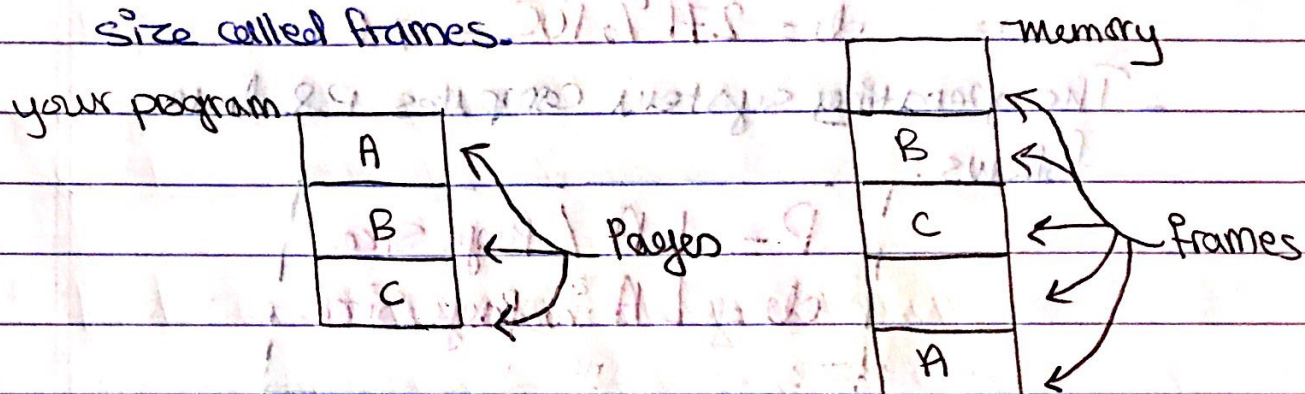 size called frames.
memory
your program
A
B
C
Pages
B
C
A
frames